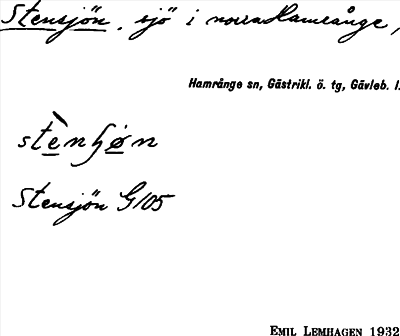 Stensjön, sjö i norra Hamrånge,
Hamrånge sn, Gästrikl. ö. tg, Gävleb. l.
Stensjön G105
EMIL LEMHAGEN 1932